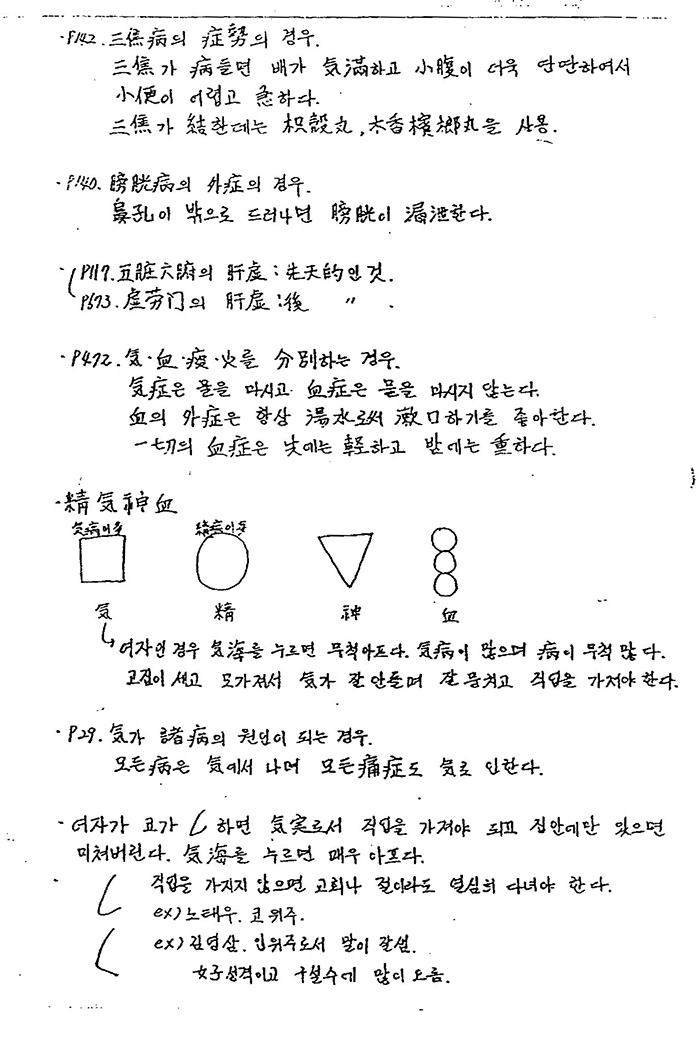 ·P142. 三焦病의 症勢의 경우.
三焦가 病들면 배가 気滿하고 小腹이 더욱 딴딴하여서
小便이 어렵고 急하다.
三焦가 結한데는 枳殼丸, 木香檳榔丸을 사용.
·P140. 膀胱病의 外症의 경우.
鼻孔이 밖으로 드러나면 膀胱이 漏泄한다.
·P117. 五脏六腑의 肝虛 : 先天的인 것.
P573. 虛劳门의 肝虛 : 後 〃 .
·P472. 気·血·痰·火를 分別하는 경우.
気症은 물을 마시고 血症은 물을 마시지 않는다.
血의 外症은 항상 湯水로써 漱口하기를 좋아한다.
一切의 血症은 낮에는 軽하고 밤에는 重하다.
·精気神血
気病이多 精病이多
気 精 神 血
↳여자인 경우 気海를 누르면 무척아프다. 気病이 많으며 病이 무척 많다.
고집이 세고 모가져서 気가 잘 안돌며 잘 뭉치고 직업을 가져야 한다.
·P29. 気가 諸病의 원인이 되는 경우.
모든病은 気에서 나며 모든痛症도 気로 인한다.
·여자가 코가 하면 気実로서 직업을 가져야 되고 집안에만 있으면
미쳐버린다. 気海를 누르면 매우 아프다.
직업을 가지지 않으면 교회나 절이라도 열심히 다녀야 한다.
ex) 노태우. 코위주.
ex) 김영삼. 입위주로서 말이 많음.
女子성격이고 구설수에 많이 오름.